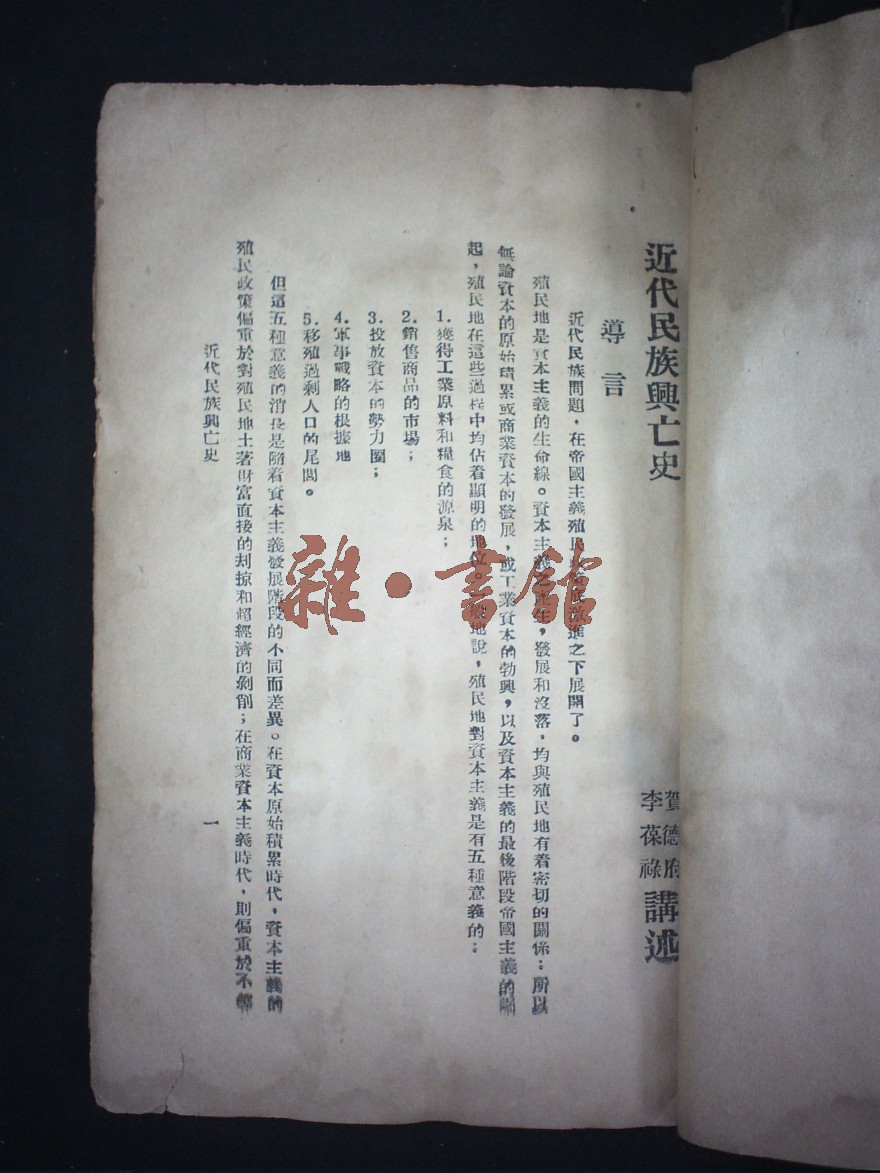 近代民族興亡史
賀德府
李葆祿
講述
導言
近代民族問題,在帝國主義殖民政策底激進之下展開了。
殖民地是資本主義的生命線。資本主義之產生,發展和沒落,均與殖民地有着密切的關係;所以
無論資本的原始積累或商業資本的發展,或工業資本的勃興,以及資本主義的最後階段帝國主義的
起,殖民地在這些過程中均佔着顯明的地位。一般地說,殖民地對資本主義是有五種意義的;
1.獲得工業原料和糧食的源泉;
2.銷售商品的市場;
3.投放資本的勢力圈;
4.軍事戰略的根據地
5.移殖過剩人口的尾閭。
但這五種意義的消長是隨着資本主義發展階段的不同而差異。在資本原始積累時代,資本主義的
殖民政策偏重於對殖民地土著財富直接的刦掠和超經濟的剝削;在商業資本主義時代,則偏重於不等
近代民族興亡史
一
雜·書館